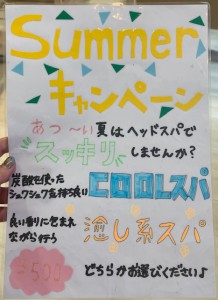 Summer
キャンペーン
あつ〜い夏はヘッドスパで
スッキリしませんか?
炭酸を使った
シュワシュワ気持ち良い
COOLスパ
良い香りに包まれ
ながら行う
癒し系スパ
どちらかお選びください♪